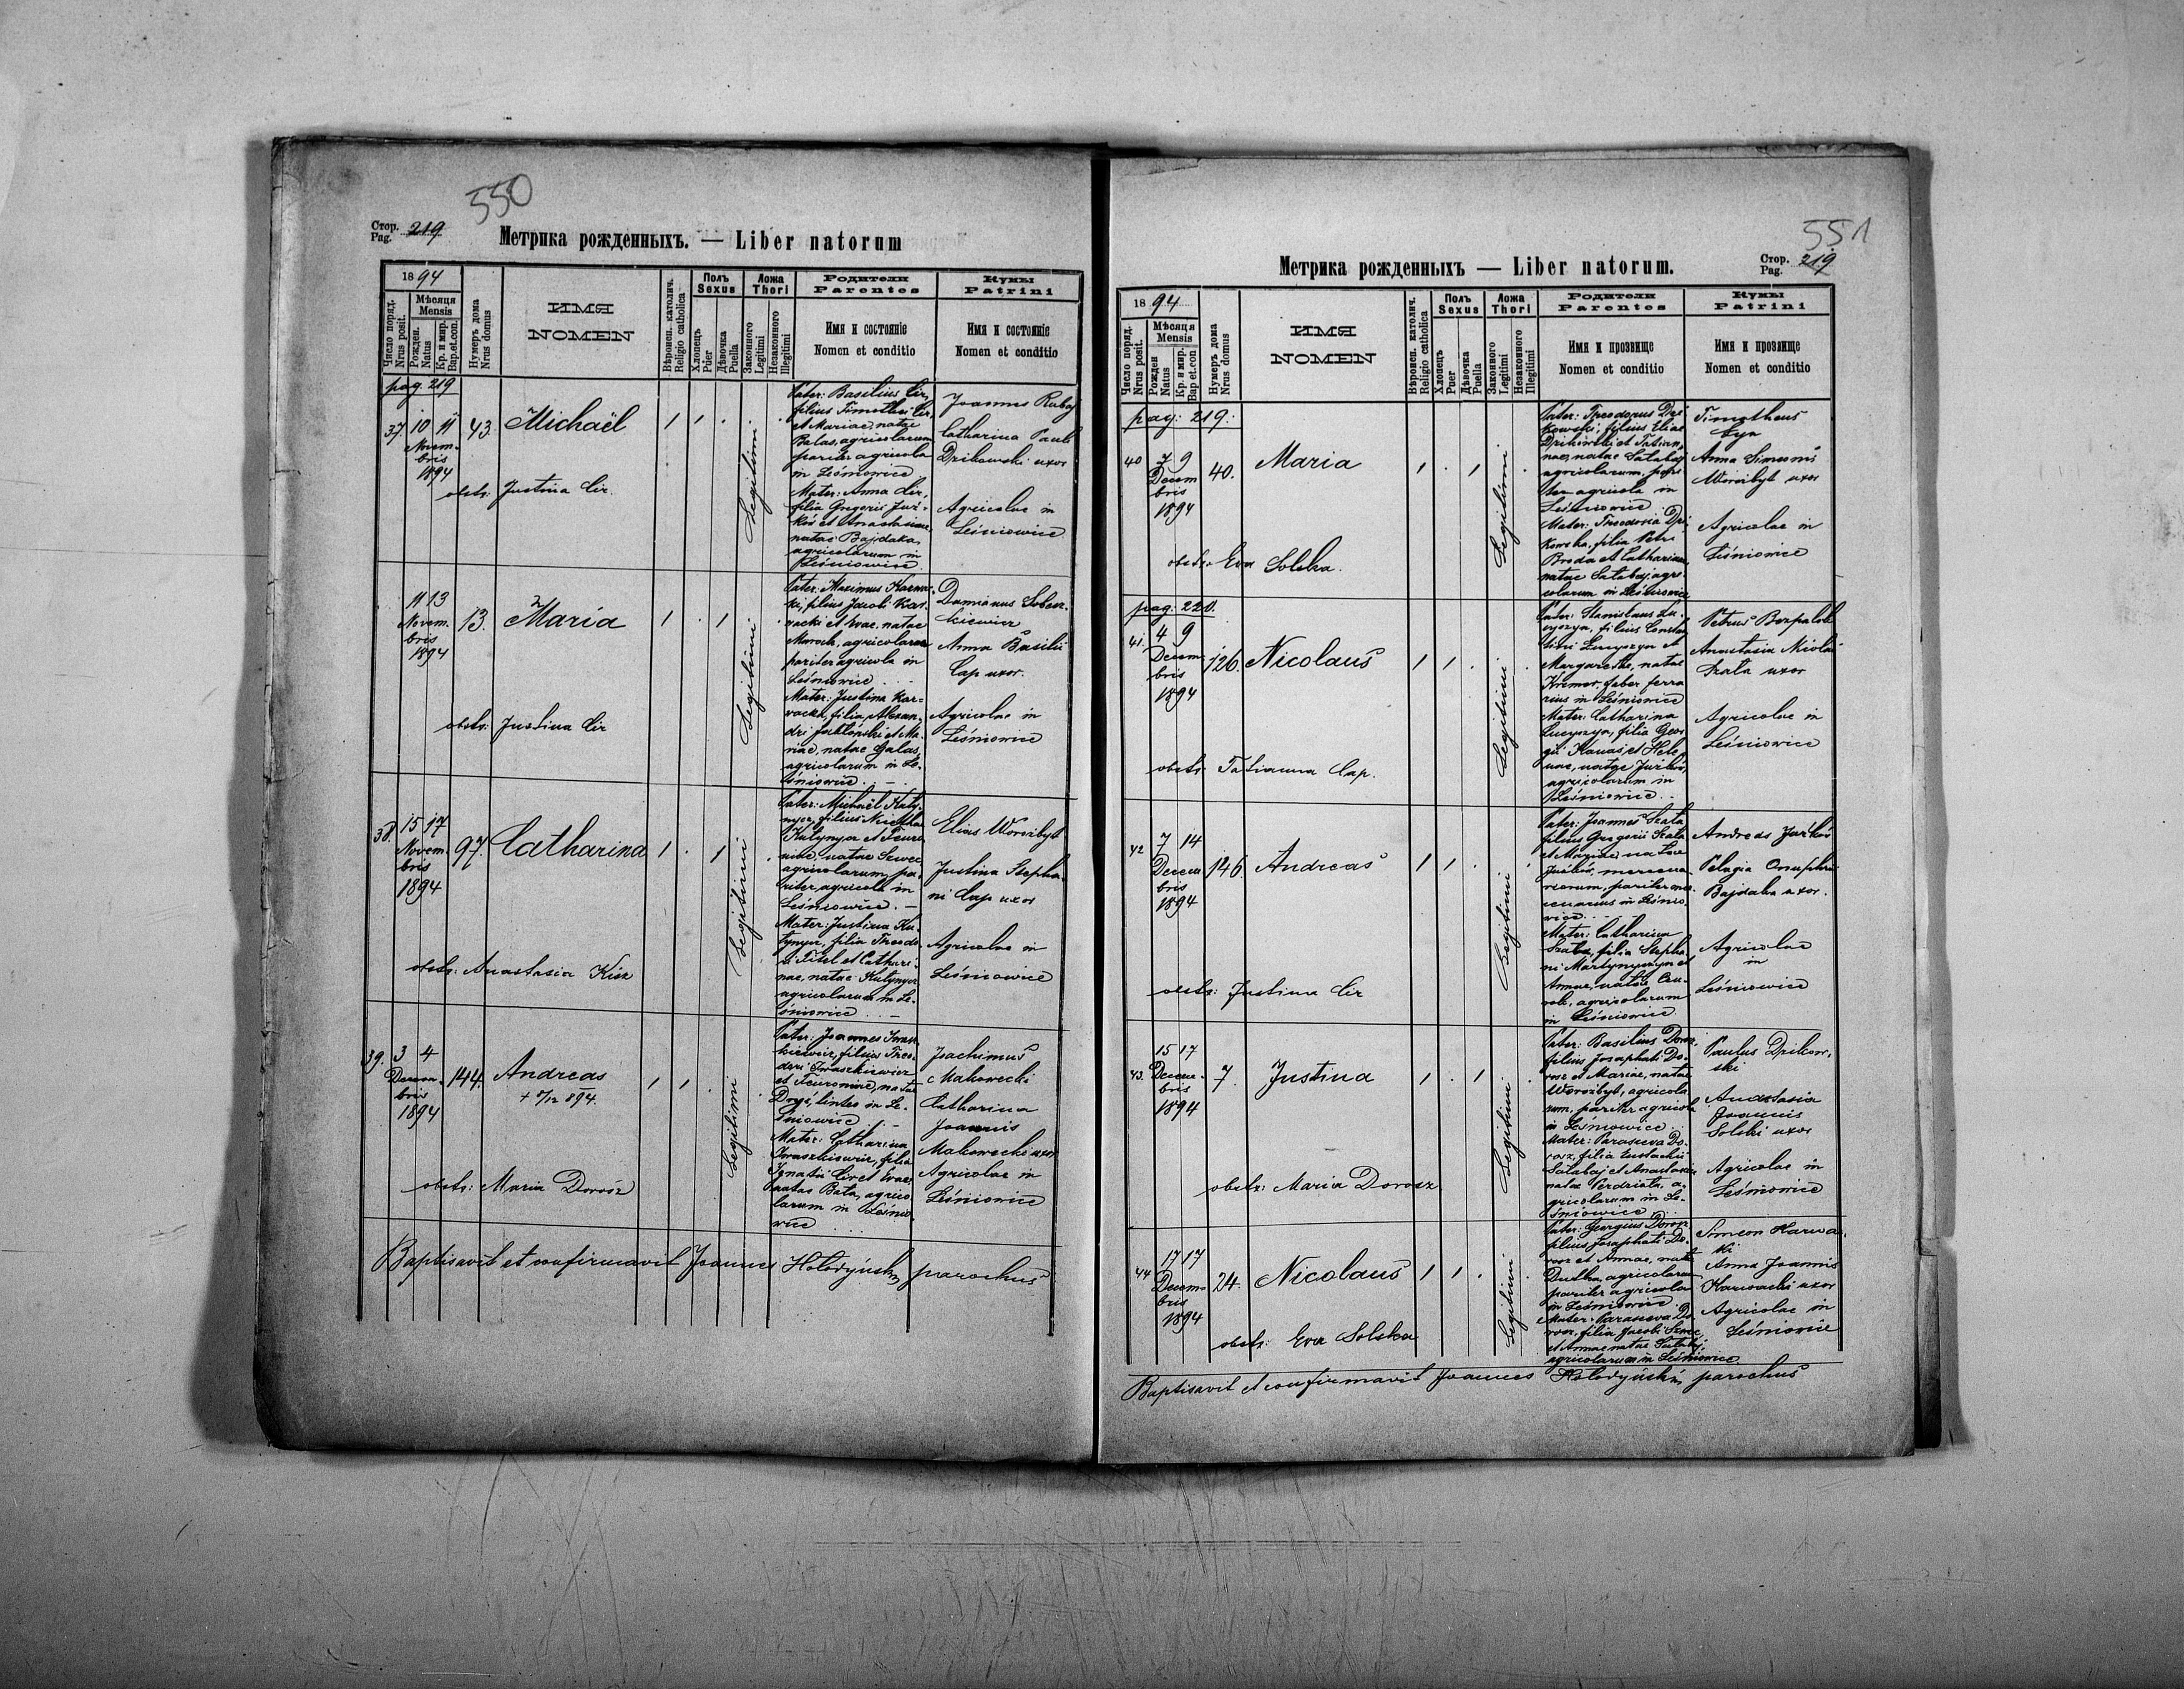 550
Стор. Pag. 219
Метрика рожденныхъ. — Liber natorum
1894
Число поряд. Nrus posit.
Мѣсяця Mensis
Рожден. Natus
Кр. и мир. Bap. et. con.
Нумеръ дома Nrus domus
ИМЯ
NOMEN
Вѣроисп. католич. Religio catholica
Полъ Sexus
Хлопецъ Puer
Дѣвочка Puella
Ложа Thori
Законного Legitimi
Незаконного Illegitimi
Родители
Parentes
Имя и состояніе
Nomen et conditio
Кумы
Patrini
Имя и состояніе
Nomen et conditio
pag. 219
37. 10 11 Novembris 1894 43. Michaël 1 1 . Legitimi .
Pater: Basilius Cir,
filius Timothei Cir,
et Mariae, natae
Balas, agricolarum
pariter agricola
in Leśniowice
Mater: Anna Cir,
filia Gregorii Juź-
natae Bajdaka,
agricolarum in
Leśniowice.
Joannes Rabaj
Catharina Pauli
Drikowski uxor
Agricolae in
Leśniowice
obstr. Justina Cir.
11 13 Novembris 1894 13. Maria 1 . 1 Legitimi .
Pater: Maximus
filius Jacobi Kar-
wacki et Evae, natae
Maroch, agricolarum
pariter agricola in
Leśniowice . . .
Mater: Justina Kar-
wacka, filia Alexan-
dri et Ma-
riae, natae Galas,
agricolarum in Le-
śniowice . . —
Damianus Sobesz-
kiewicz
Anna Basilii
Cap uxor.
Agricolae in
Leśniowice
obstr. Justina Cir
38. 15 17 Novembris 1894 97. Catharina 1 . 1 Legitimi .
Pater: Michaël Kuty-
nycz, filius
Kutynycz et Feuro-
niae, natae Szwec
agricolarum, pa-
riter agricola in
Leśniowice. —
Mater: Justina Ku-
tynycz, filia Theodo-
ri Titel et Cathari-
nae, natae Kutynycz
agricolarum in Le-
śniowice . . —
Elias Worożbyt
Justina Stepha-
ni Cap uxor
Agricolae in
Leśniowice
obstr: Anastasia Kisz
39. 3 4 Decembris 1894 144. Andreas 1 1 . Legitimi .
+ 8/12 894.
Pater: Joannes Iwasz-
kiewicz, filius Theo-
dori Iwaszkiewicz
et Feuroniae, natae
in Le-
śniowice . . —
Mater: Catharina
Iwaszkiewicz, filia
Ignatii Cir et Evae,
natae Bata, agrico-
larum in Leśnio-
wice
Joachimus
Makowecki
Catharina
Joannis
Makowecki uxor
Agricolae in
Leśniowice
obstr: Maria Dorosz
Baptisavit et confirmavit Joannes Hołodyński, parochus
551
Метрика рожденныхъ — Liber natorum.
Стор. Pag. 219
1894
Число поряд. Nrus posit.
Мѣсяця Mensis
Рожден Natus
Кр. и мир. Bap et.con
Нумеръ дома Nrus domus
ИМЯ
NOMEN
Вѣроисп. католич. Religio catholica
Полъ Sexus
Хлопецъ Puer
Дѣвочка Puella
Ложа Thori
Законного Legitimi
Незаконного Illegitimi
Родители
Parentes
Имя и прозвище
Nomen et conditio
Кумы
Patrini
Имя и прозвище
Nomen et conditio
pag: 219.
40 7 9 Decembris 1894 40. Maria 1 . 1 Legitimi .
Pater: Theodorus Dri-
kowski, filius Eliae
Drikowski et Tatian-
nae, natae Satabaj
agricolarum, pari-
ter agricola in
Leśniowice
Mater: Theodosia Dri-
kowska, filia Petri
Broda et Catharinae,
natae Satabaj, agri-
colarum in Leśniowice
Timotheus
Anna Simeonis
Worożbyt uxor
Agricolae in
Leśniowice
obstr. Eva Solska.
pag: 220.
41. 4 9 Decembris 1894 126 Nicolaus 1 1 . Legitimi .
Pater: Stanislaus Lu-
cyszyn, filius Constan-
tini Lucyszyn et
Margarethae, natae
Kremer, faber ferra-
rius in Leśniowice
Mater: Catharina
Lucyszyn, filia Geor-
gii et Hele-
nae, natae
agricolarum in
Leśniowice. . .
Petrus Bezpalok
Anastasia Nicolai
Szata uxor
Agricolae in
Leśniowice
obstr. Tatianna Cap.
42 7 14 Decembris 1894 146 Andreas 1 1 . Legitimi .
Pater: Joannes Szata
filius Gregorii Szata
et Mariae, natae
mercena-
riorum, pariter mer-
cenarius in Leśnio-
wice. . .
Mater: Catharina
Szata, filia Stepha-
ni Martynyszyn et
Annae, natae
agricolarum
in Leśniowice
Andreas
Pelagia Onuphrii
Bajdaka uxor.
Agricolae
in
Leśniowice
obstr: Justina Cir
43. 15 17 Decembris 1894 7. Justina 1 . 1 Legitimi .
Pater: Basilius Dorosz,
filius Josaphati Do-
rosz et Mariae, natae
Worożbyt, agricola-
rum, pariter agricola
in Leśniowice.
Mater: Parasceva Do-
rosz, filia Eustachii
Satabaj et Anastasiae
natae a-
gricolarum in Le-
śniowice.
Paulus Drikow-
ski
Anastasia
Joannis
Solski uxor
Agricolae in
Leśniowice
obstr: Maria Dorosz
44 17 17 Decembris 1894 24. Nicolaus 1 1 . Legitimi .
Pater: Georgius Dorosz
filius Josaphati Do-
rosz et Annae, natae
Dutka, agricolarum
pariter agricola
in Leśniowice.
Mater: Parasceva Do-
rosz, filia Jacobi Szwec
et Annae natae Satabaj,
agricolarum in Leśniowice.
Simeon
Anna Joannis
Karwacki uxor
Agricolae in
Leśniowice
obstr: Eva Solska
Baptisavit et confirmavit Joannes Hołodyński, parochus